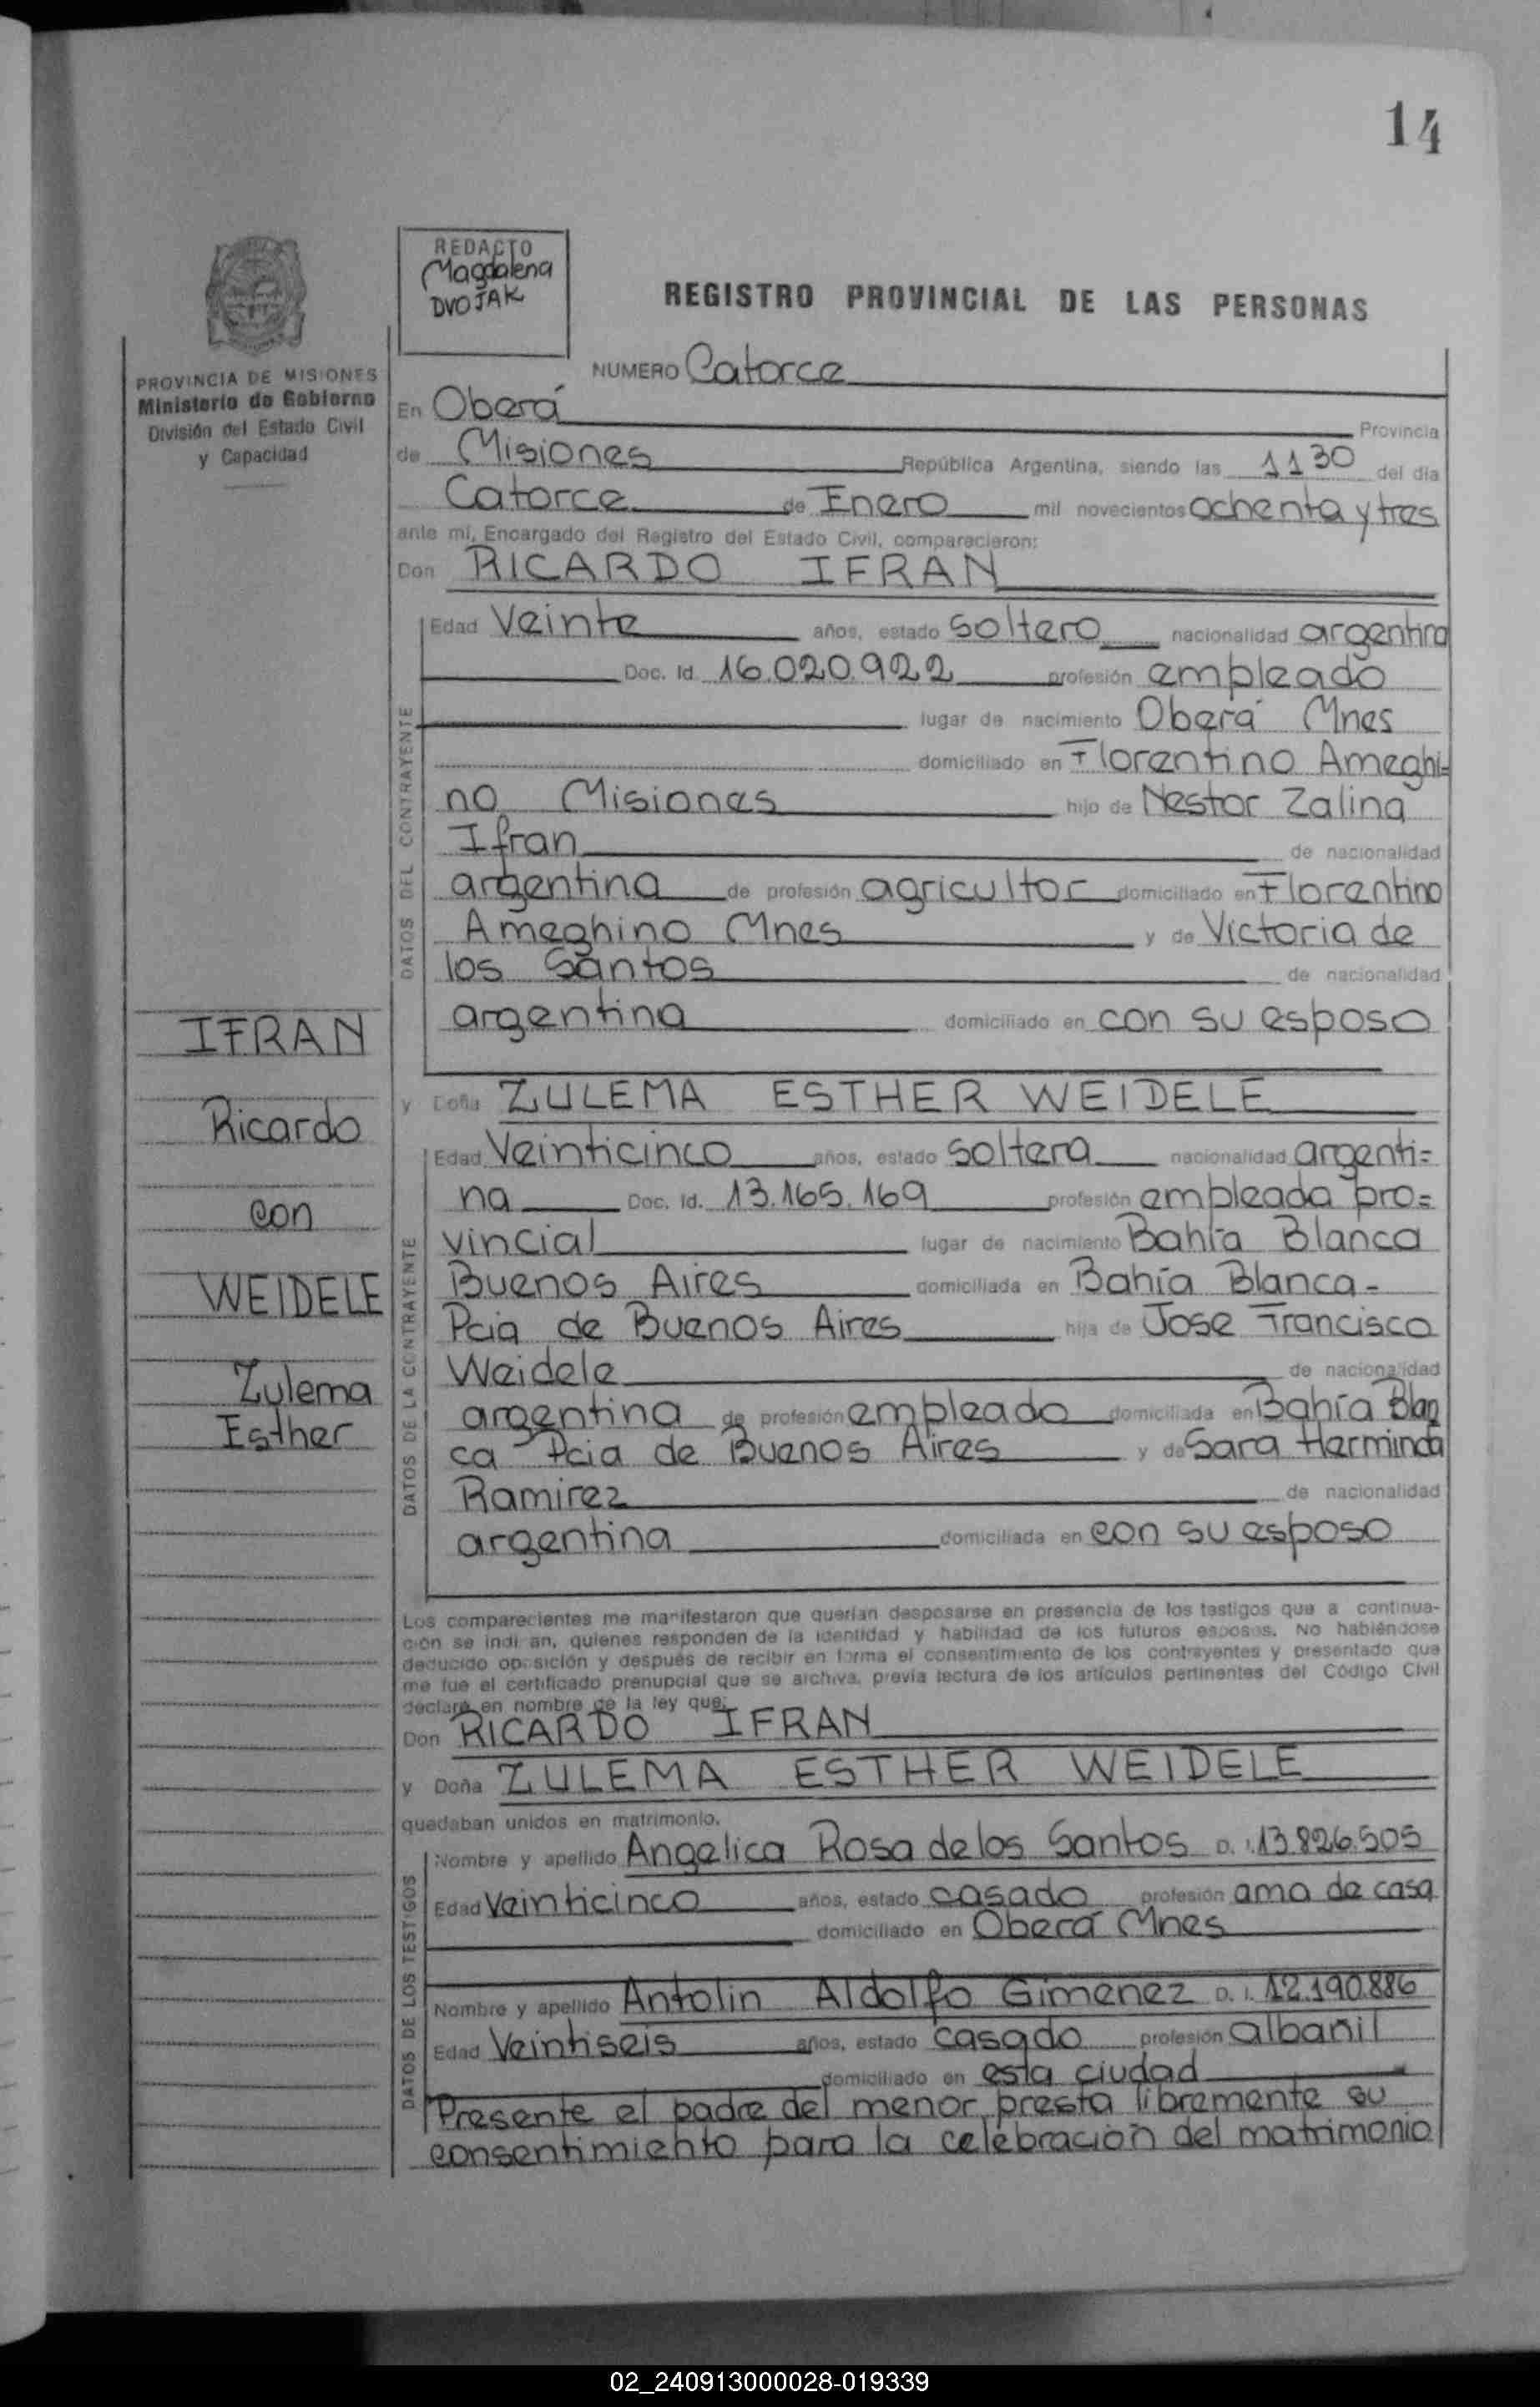 14
REDACTO
Magdalena
DVOJAK
REGISTRO PROVINCIAL DE LAS PERSONAS
PROVINCIA DE MISIONES
Ministerio de Gobierno
División del Estado Civil
y Capacidad
NUMERO Catorce
En Oberá Provincia
de Misiones República Argentina, siendo las 11 30 del día
Catorce de Enero mil novecientos ochenta y tres
ante mí, Encargado del Registro del Estado Civil, comparecieron:
Don RICARDO IFRAN
DATOS DEL CONTRAYENTE
Edad Veinte años, estado soltero nacionalidad argentina
Doc. Id. 16.020.922 profesión empleado
lugar de nacimiento Oberá Mnes
domiciliado en Florentino Ameghi=
no Misiones hijo de Nestor Zalina
Ifran de nacionalidad
argentina de profesión agricultor domiciliado en Florentino
Ameghino Mnes y de Victoria de
los Santos de nacionalidad
argentina domiciliado en con su esposo
IFRAN
Ricardo
con
WEIDELE
Zulema
Esther
y Doña ZULEMA ESTHER WEIDELE
DATOS DE LA CONTRAYENTE
Edad Veinticinco años, estado soltera nacionalidad argenti=
na Doc. Id. 13.165.169 profesión empleada pro=
vincial lugar de nacimiento Bahía Blanca
Buenos Aires domiciliada en Bahía Blanca-
Pcia de Buenos Aires hija de Jose Francisco
Weidele de nacionalidad
argentina de profesión empleado domiciliada en Bahía Blan
ca Pcia de Buenos Aires y de Sara Herminda
Ramirez de nacionalidad
argentina domiciliada en con su esposo
Los comparecientes me manifestaron que querían desposarse en presencia de los testigos que a continua-
ción se indi an, quienes responden de la identidad y habilidad de los futuros esposos. No habiéndose
deducido oposición y después de recibir en forma el consentimiento de los contrayentes y presentado que
me fue el certificado prenupcial que se archiva, previa lectura de los artículos pertinentes del Código Civil
declaré en nombre de la ley que:
Don RICARDO IFRAN
y Doña ZULEMA ESTHER WEIDELE
quedaban unidos en matrimonio.
DATOS DE LOS TESTIGOS
Nombre y apellido Angelica Rosa de los Santos D. I. 13.826.505
Edad Veinticinco años, estado casado profesión ama de casa
domiciliado en Oberá Mnes
Nombre y apellido Antolin Aldolfo Gimenez D. I. 12.190.886
Edad Veintiseis años, estado casado profesión albañil
domiciliado en esta ciudad
Presente el padre del menor, presta libremente su
consentimiento para la celebración del matrimonio
02_240913000028-019339